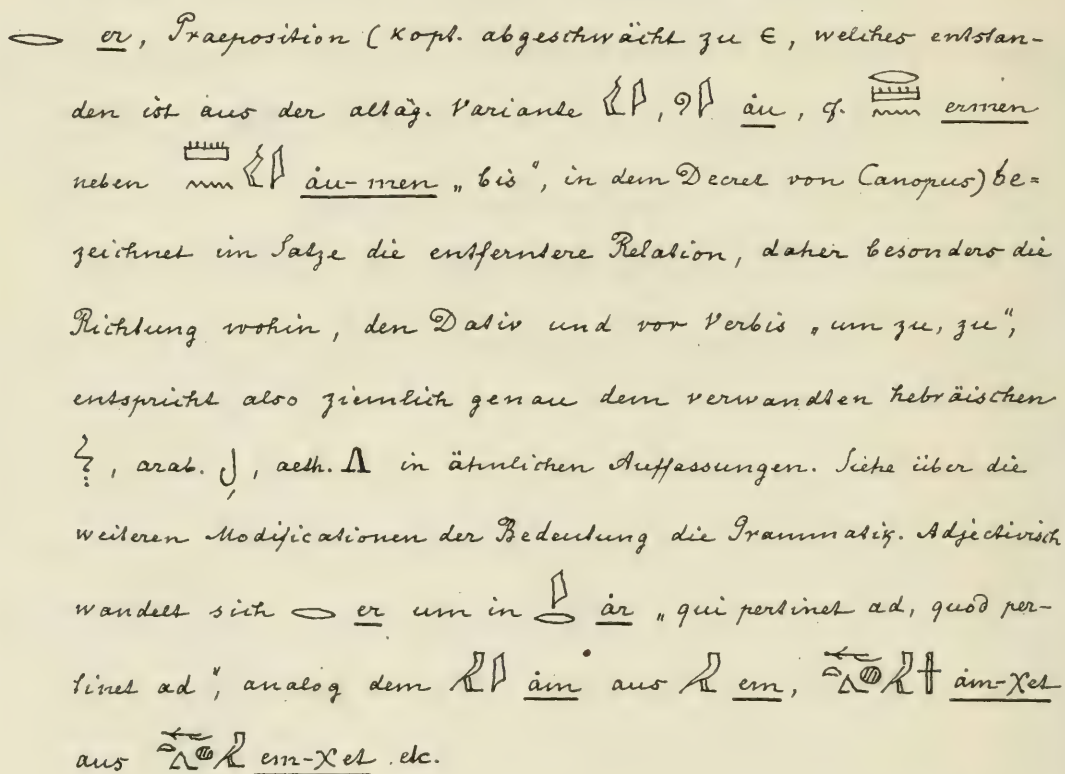 𓂋 er, Praeposition (Kopt. abgeschwächt zu ⲉ, welches entstan-
den ist aus der altäg. Variante 𓅱𓇋, 𓏲𓇋 àu, cf. 𓂋𓏠𓈖 ermen
neben 𓏠𓈖𓅱𓇋 àu-men „bis“, in dem Decret von Canopus) be=
zeichnet im Satze die entferntere Relation, daher besonders die
Richtung wohin, den Dativ und vor Verbis „um zu, zu“,
entspricht also ziemlich genau dem verwandten hebräischen
לְ, arab. لِ, aeth. ለ in ähnlichen Auffassungen. Siehe über die
weiteren Modificationen der Bedeutung die Grammatik. Adjectivisch
wandelt sich 𓂋 er um in 𓇋𓂋 àr „qui pertinet ad, quod per-
tinet ad“, analog dem 𓅓𓇋 àm aus 𓅓 em, àm-χet
aus em-χet etc.